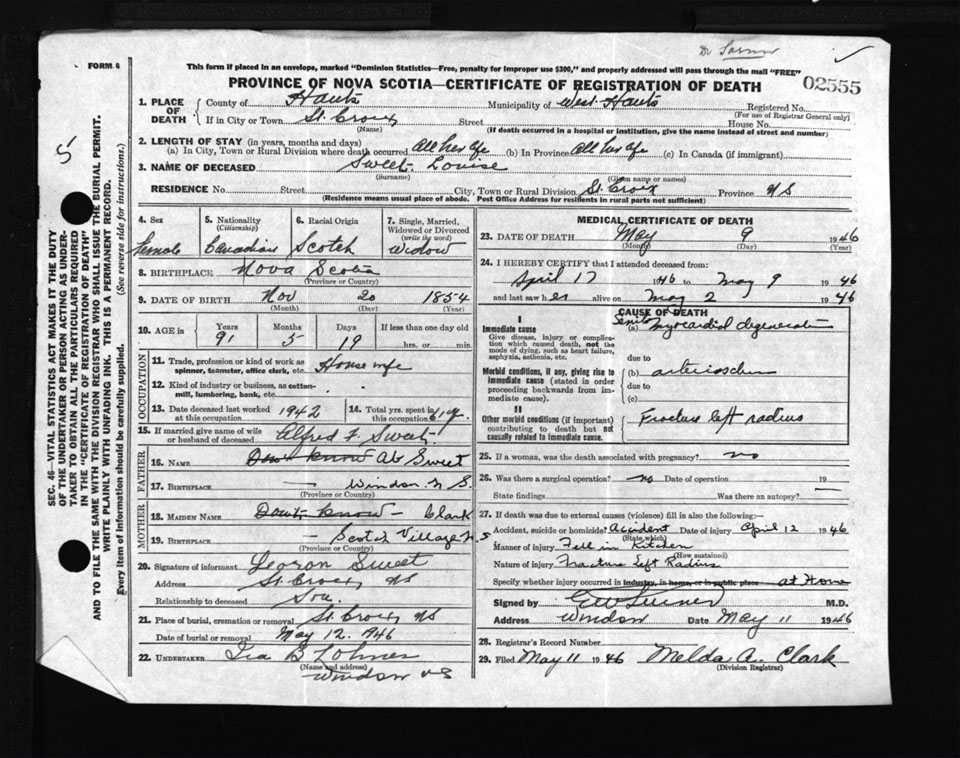 FORM 6
This form if placed in an envelope, marked "Dominion Statistics—Free, penalty for improper use $300," and properly addressed will pass through the mail "FREE"
PROVINCE OF NOVA SCOTIA—CERTIFICATE OF REGISTRATION OF DEATH
02555
5
SEC. 46—VITAL STATISTICS ACT MAKES IT THE DUTY
OF THE UNDERTAKER OR PERSON ACTING AS UNDER-
TAKER TO OBTAIN ALL THE PARTICULARS REQUIRED
IN THE "CERTIFICATE OF REGISTRATION OF DEATH"
AND TO FILE THE SAME WITH THE DIVISION REGISTRAR WHO SHALL ISSUE THE BURIAL PERMIT.
WRITE PLAINLY WITH UNFADING INK. THIS IS A PERMANENT RECORD.
Every item of information should be carefully supplied. (See reverse side for instructions.)
1. PLACE OF DEATH
County of Hants Municipality of West Hants Registered No.
(For use of Registrar General only)
If in City or Town St. Croix Street House No.
(Name) (If death occurred in a hospital or institution, give the name instead of street and number)
2. LENGTH OF STAY (in years, months and days)
(a) In City, Town or Rural Division where death occurred All her life (b) In Province All her life (c) In Canada (if immigrant)
3. NAME OF DECEASED Sweet Louise
(Surname) (Given name or names)
RESIDENCE No. Street City, Town or Rural Division St. Croix Province NS
(Residence means usual place of abode. Post Office Address for residents in rural parts not sufficient)
4. Sex Female
5. Nationality (Citizenship) Canadian
6. Racial Origin Scotch
7. Single, Married, Widowed or Divorced (write the word) Widow
8. BIRTHPLACE Nova Scotia
(Province or Country)
9. DATE OF BIRTH Nov 20 1854
(Month) (Day) (Year)
10. AGE in Years Months Days If less than one day old
91 5 19 hrs. or min.
OCCUPATION
11. Trade, profession or kind of work as spinner, teamster, office clerk, etc. House wife
12. Kind of industry or business, as cotton-mill, lumbering, bank, etc.
13. Date deceased last worked at this occupation 1942
14. Total yrs. spent in this occupation 61 yr.
15. If married give name of wife or husband of deceased Alfred F. Sweet
FATHER
16. NAME Don't know Ab Sweet
17. BIRTHPLACE — Windsor N S.
(Province or Country)
MOTHER
18. MAIDEN NAME Don't know — Clark
19. BIRTHPLACE — Scotch Village N S
(Province or Country)
20. Signature of informant Sweet
Address St. Croix NS
Relationship to deceased Son.
21. Place of burial, cremation or removal St. Croix NS
Date of burial or removal May 12. 1946
22. UNDERTAKER Ira B Lohnes
(Name and address)
Windsor NS
MEDICAL CERTIFICATE OF DEATH
23. DATE OF DEATH May 9 1946
(Month) (Day)
24. I HEREBY CERTIFY that I attended deceased from:
April 17 1946 to May 9 1946
and last saw her alive on May 2 1946
CAUSE OF DEATH
I
Immediate cause
Give disease, injury or complication which caused death, not the mode of dying, such as heart failure, asphyxia, asthenia, etc.
Senile
(a) myocardial degeneration
due to
Morbid conditions, if any, giving rise to immediate cause (stated in order proceeding backwards from immediate cause).
(b)
due to
(c)
II
Other morbid conditions (if important) contributing to death but not causally related to immediate cause.
Fracture left radius
25. If a woman, was the death associated with pregnancy? no
26. Was there a surgical operation? no Date of operation 19
State findings Was there an autopsy?
27. If death was due to external causes (violence) fill in also the following:—
Accident, suicide or homicide? Accident Date of injury April 12 1946
(State which)
Manner of injury Fall in Kitchen
(How sustained)
Nature of injury Fracture Left Radius
Specify whether injury occurred in industry, in home, or in public place at Home
Signed by M.D.
Address Windsor Date May 11 1946
28. Registrar's Record Number
29. Filed May 11 1946 Melda A. Clark
(Division Registrar)